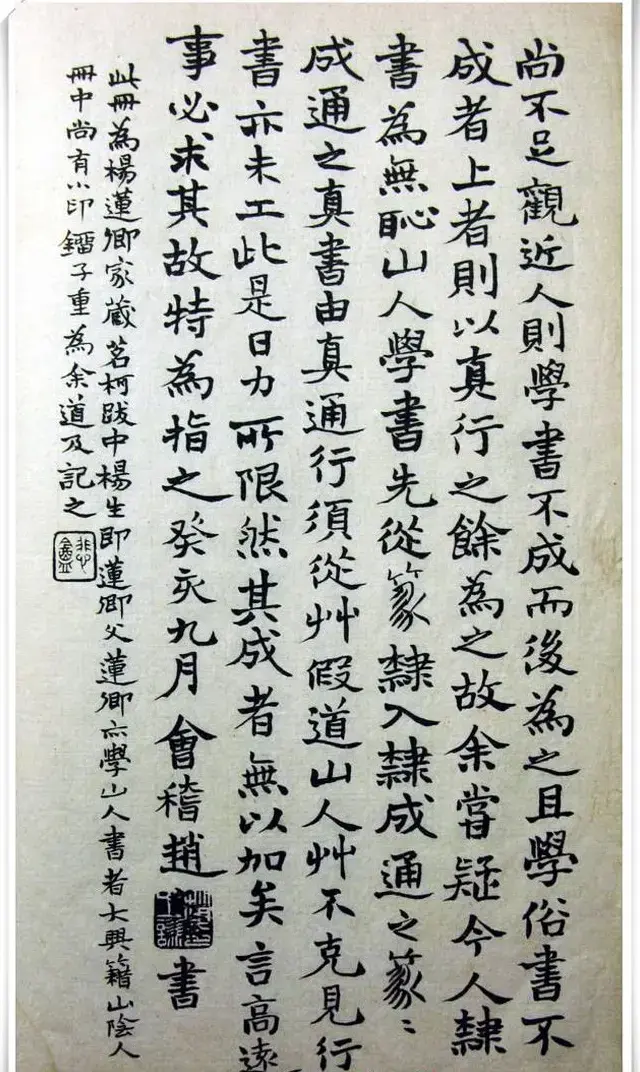 尚不足觀近人則學書不成而後為之且學俗書不
成者上者則以真行之餘為之故余嘗疑今人隸
書為無恥山人學書先從篆隸入隸成通之篆〻
成通之真書由真通行須從艸假道山人艸不克見行
書亦未工此是日力所限然其成者無以加矣言高遠
事必求其故特為指之癸亥九月會稽趙書
此冊為楊蓮卿家藏茗柯跋中楊生即蓮卿父蓮卿亦學山人書者大興籍山陰人
冊中尚有小印鐂子重為余道及記之
悲盦